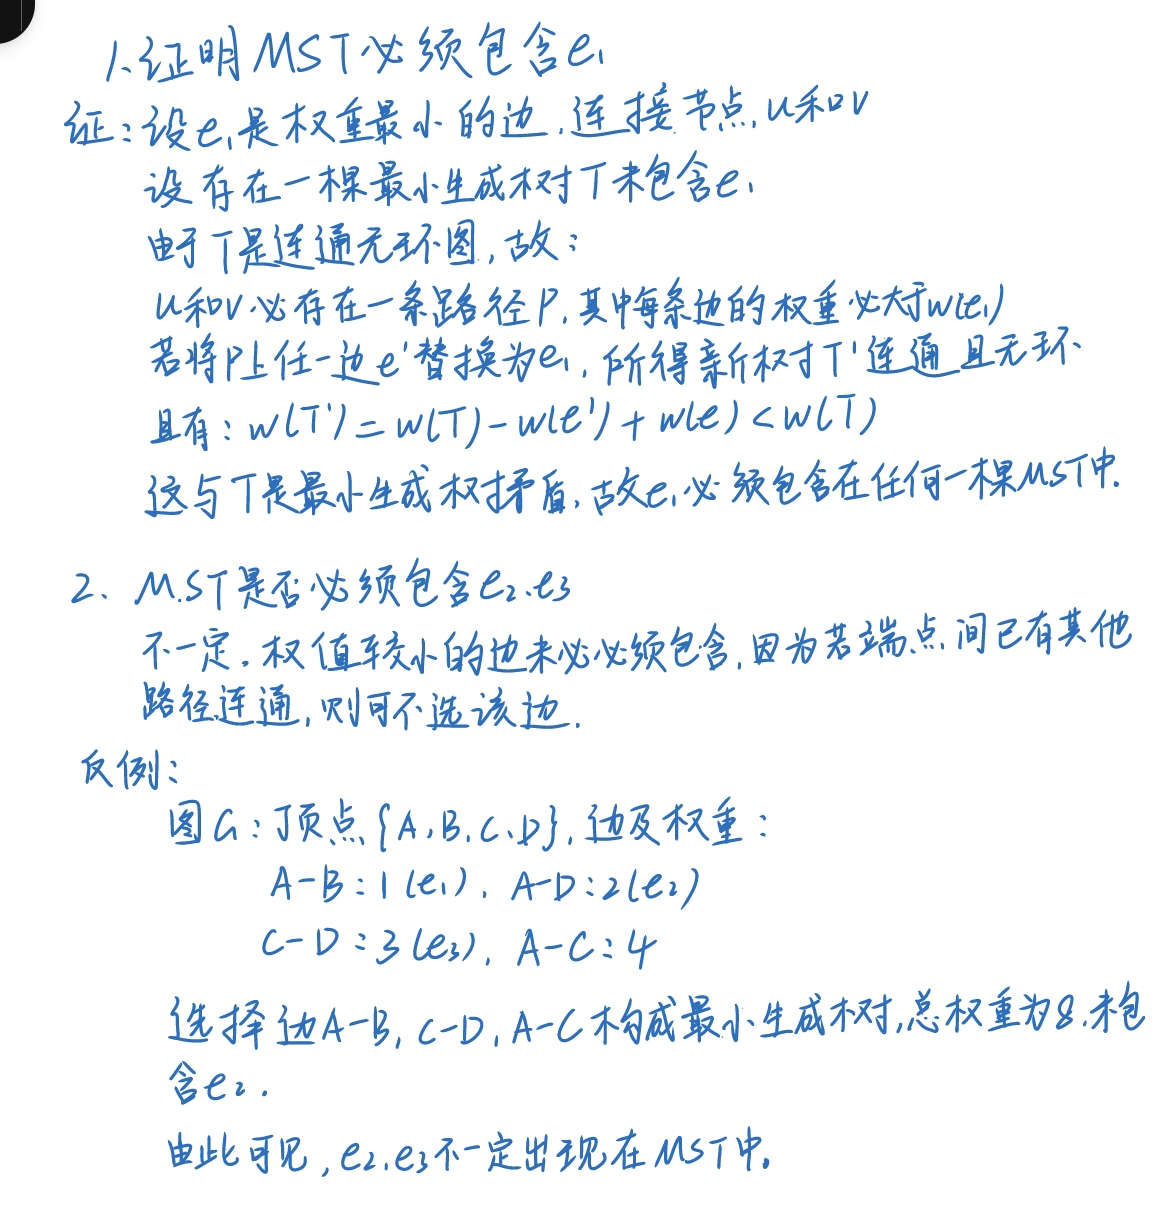 1、证明MST必须包含e₁
证：设e₁是权重最小的边，连接节点u和v
设存在一棵最小生成树T未包含e₁
由于T是连通无环图，故：
u和v必存在一条路径P，其中每条边的权重必大于w(e₁)
若将P上任一边e'替换为e₁，所得新树T'连通且无环
且有：w(T')=w(T)-w(e')+w(e)<w(T)
这与T是最小生成树矛盾，故e₁必须包含在任何一棵MST中.
2、MST是否必须包含e₂、e₃
不一定。权值较小的边未必必须包含，因为若端点间已有其他
路径连通，则可不选该边.
反例：
图G：顶点{A,B,C,D}，边及权重：
A-B:1(e₁)，A-D:2(e₂)
C-D:3(e₃)，A-C:4
选择边A-B，C-D，A-C构成最小生成树，总权重为8.未包
含e₂.
由此可见，e₂,e₃不一定出现在MST中。